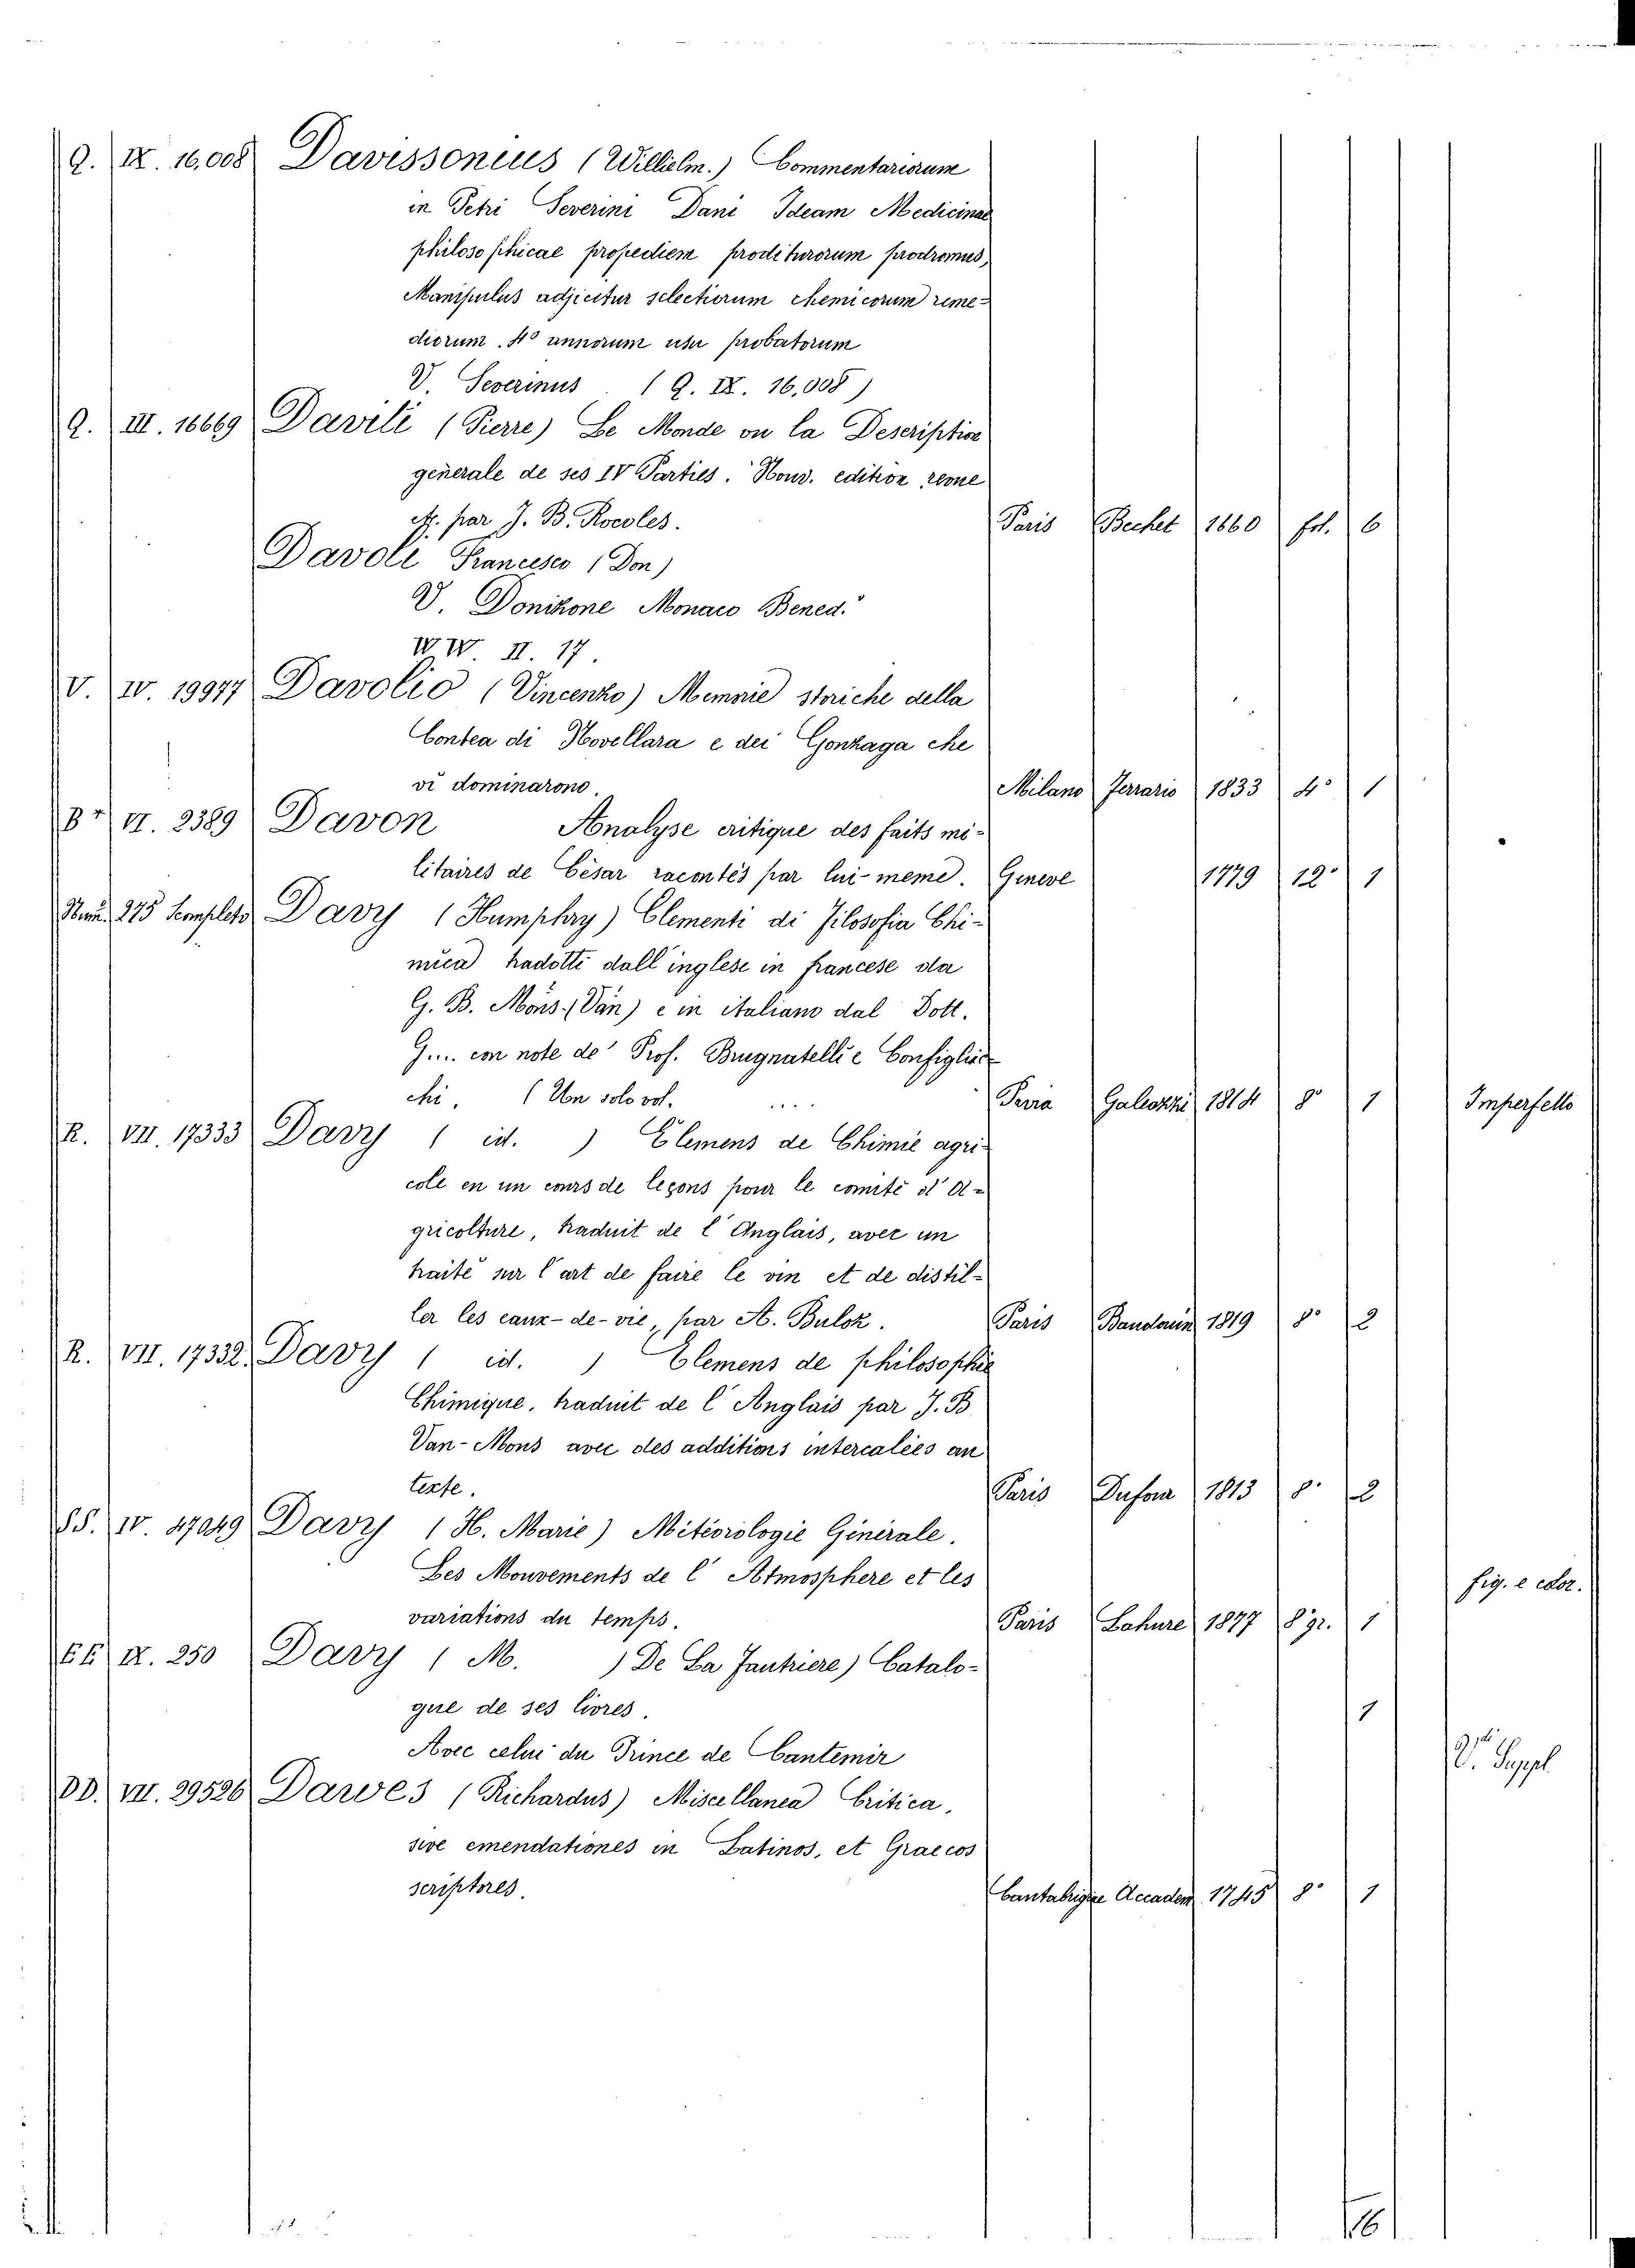 Q. IX. 16,008 Davissonius (Willielm.) Commentariorum
in Petri Severini Dani Ideam Medicinae
philosophicae propediem proditurorum prodromus,
Manipulus adjicitur selectiorum chemicorum reme-
diorum. 4° annorum usu probatorum
V. Severinus. (Q. IX. 16,008)
Q. III. 16669 Daviti (Pierre) Le Monde ou la Description
generale de ses IV Parties. Nouv. edition reone
par J. B. Rocoles. Paris Bechet 1660 fol. 6
Davoli Francesco (Don)
V. Donizone Monaco Bened.
WW. II. 17.
V. IV. 19977 Davolio (Vincenzo) Memorie storiche della
Contea di Novellara e dei Gonzaga che
vi dominarono. Milano Ferrario 1833 4° 1
VI. 2389 Davon Analyse critique des faits mi-
litaires de César racontés par lui-meme. Geneve 1779 12° 1
275 Davy (Humphry) Elementi di Filosofia Chi-
mica tradotti dall'inglese in francese da
G. B. Mons (Van) e in italiano dal Dott.
G.... con note de' Prof. Brugnatelli e Configlia-
chi. (Un solo vol. .... Pavia Galeazzi 1814 8° 1 Imperfetto
R. VII. 17333 Davy ( id. ) Elemens de Chimie agri-
cole en un cours de leçons pour le comité d'A-
gricolture, traduit de l'Anglais, avec un
traité sur l'art de faire le vin et de distil-
ler les eaux-de-vie, par A. Bulok. Paris Baudouin 1819 8° 2
R. VII. 17332. Davy ( id. ) Elemens de philosophie
Chimique, traduit de l'Anglais par J. B
Van-Mons avec des additions intercalées au
texte. Paris Dufour 1813 8° 2
SS. IV. 47049 Davy (H. Marie) Météorologie Générale.
Les Mouvements de l'Atmosphere et les fig. e color.
variations du temps. Paris Lahure 1877 8° gr. 1
EE IX. 250 Davy ( M. ) De La Fautriere) Catalo-
gue de ses livres. 1
Avec celui du Prince de Cantemir V. Suppl
DD. VII. 29526 Dawes (Richardus) Miscellanea Critica,
sive emendationes in Latinos, et Graecos
scriptores. Cantabrigiae Accadem. 1745 8° 1
16